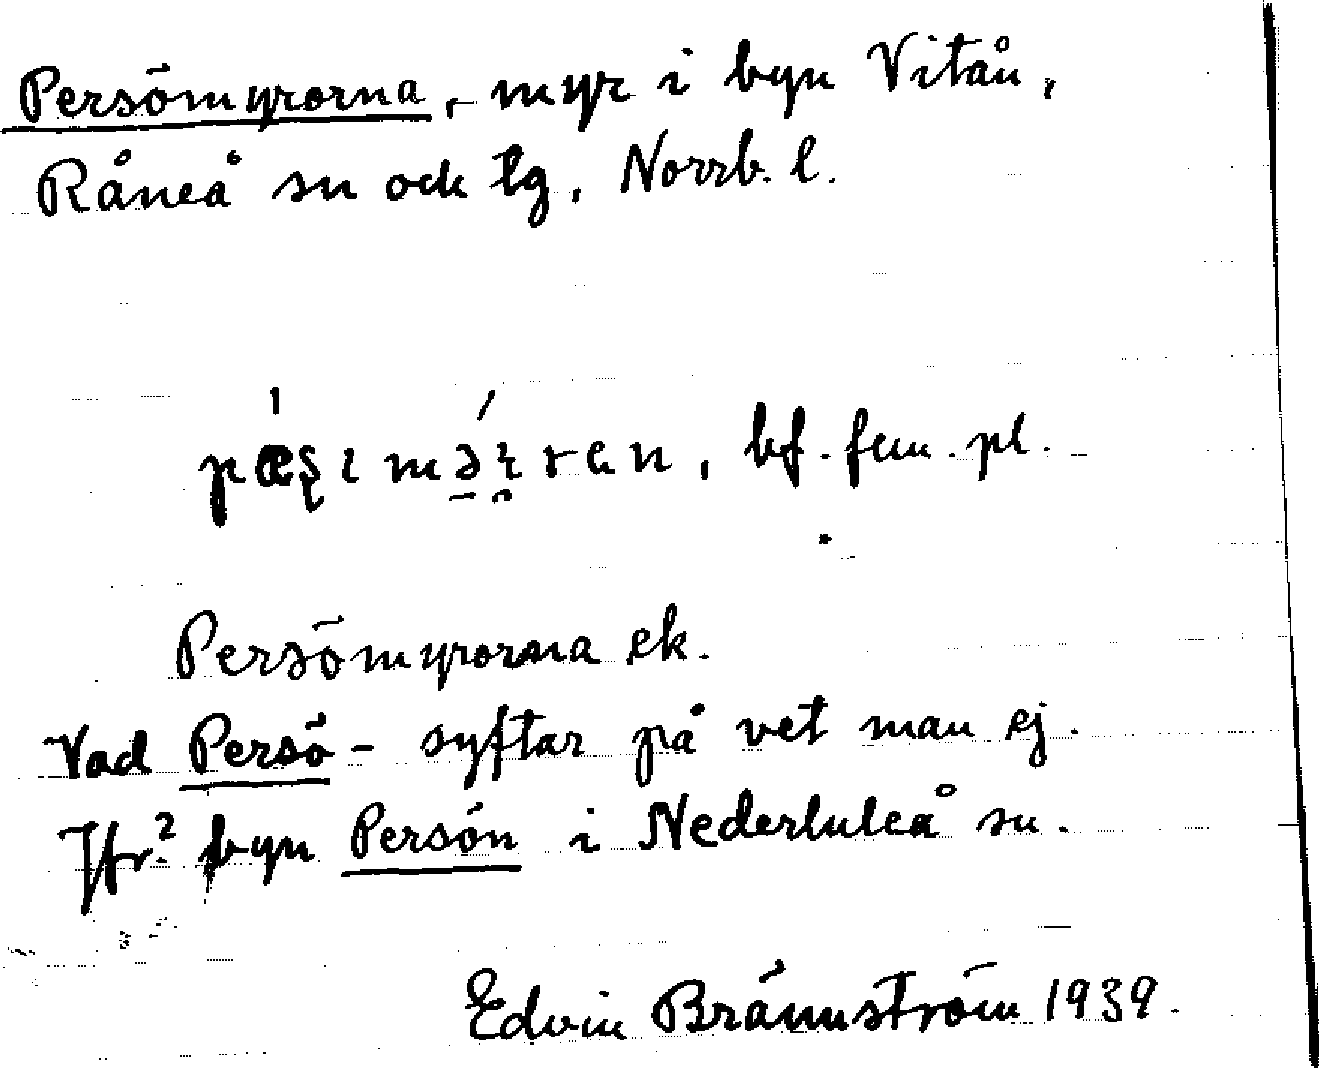 Persömyrorna, myr i byn Vitån,
Råneå sn ock tg, Norrb. l.
bf. fem. pl.
Persömyrorna ek.
Vad Persö- syftar på vet man ej.
Jfr.? byn Persön i Nederluleå sn.
Edvin Brännström 1939.